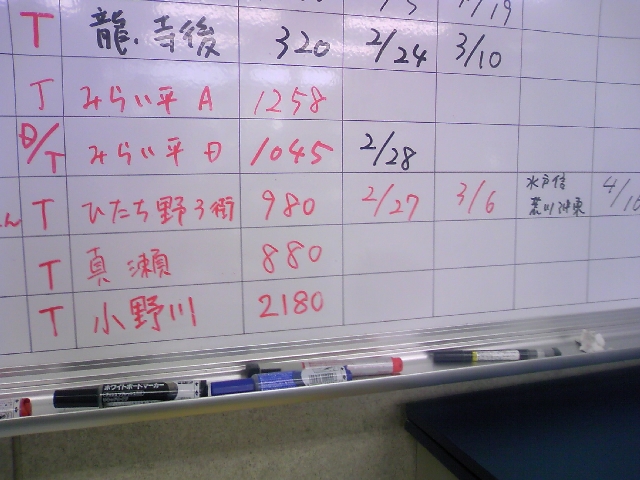 T 龍.寺後 320 2/24 3/10
T みらい平 A 1258
T みらい平 1045 2/28
T ひたち野3街 980 2/27 3/6 水戸信 4/
T 真瀬 880
T 小野川 2180
ホワイトボードマーカー